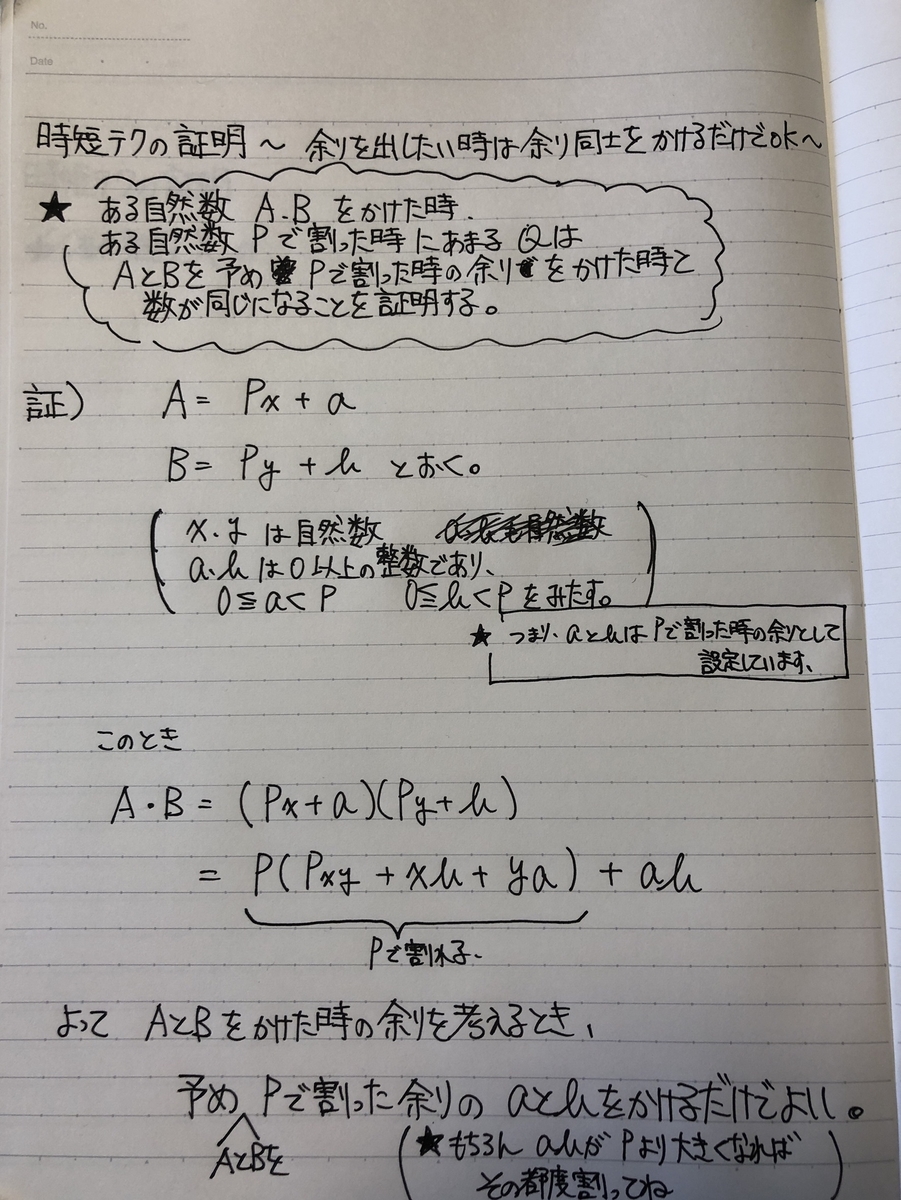 No.
Date
時短テクの証明〜 余りを出したい時は余り同士をかけるだけでOK〜
★ ある自然数 A.B をかけた時.
ある自然数 Pで割った時にあまる Qは
AとBを予め Pで割った時の余りをかけた時と
数が同じになることを証明する。
証) A= Px + a
B= Py + b とおく。
x.y は自然数
a.b は0以上の整数であり、
0≦a<P 0≦b<Pをみたす。
★ つまり、aとbはPで割った時の余りとして
設定しています、
このとき
A・B = (Px+a)(Py+b)
= P(Pxy + xb + ya) + ab
Pで割れる.
よって AとBをかけた時の余りを考えるとき、
予め Pで割った余りの aとbをかけるだけでよい。
AとBを
(★もちろん abが Pより大きくなれば
その都度割ってね